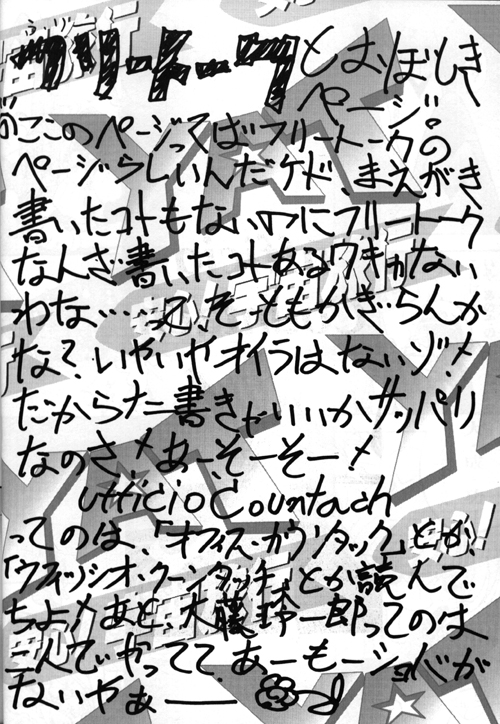 フリートークとおぼしき
ページ!
ここのページってばフリートークの
ページらしいんだケド、まえがき
書いたコトもないのにフリートーク
なんざ書いたコトあるワキゃない
わな…って、そーともかぎらんか
な?いやいやオイラはないゾ!
だからナニ書きゃいいかサッパリ
なのさ!あ、そーそー!
Ufficio Countach
ってのは、「オフィス・カウンタック」とか
「ウフィッシオ・クーンタッチ」とか読んで
ちょ!あと、大藤玲一郎ってのは
なんでやってて、あーもージョバが
ないやぁ——